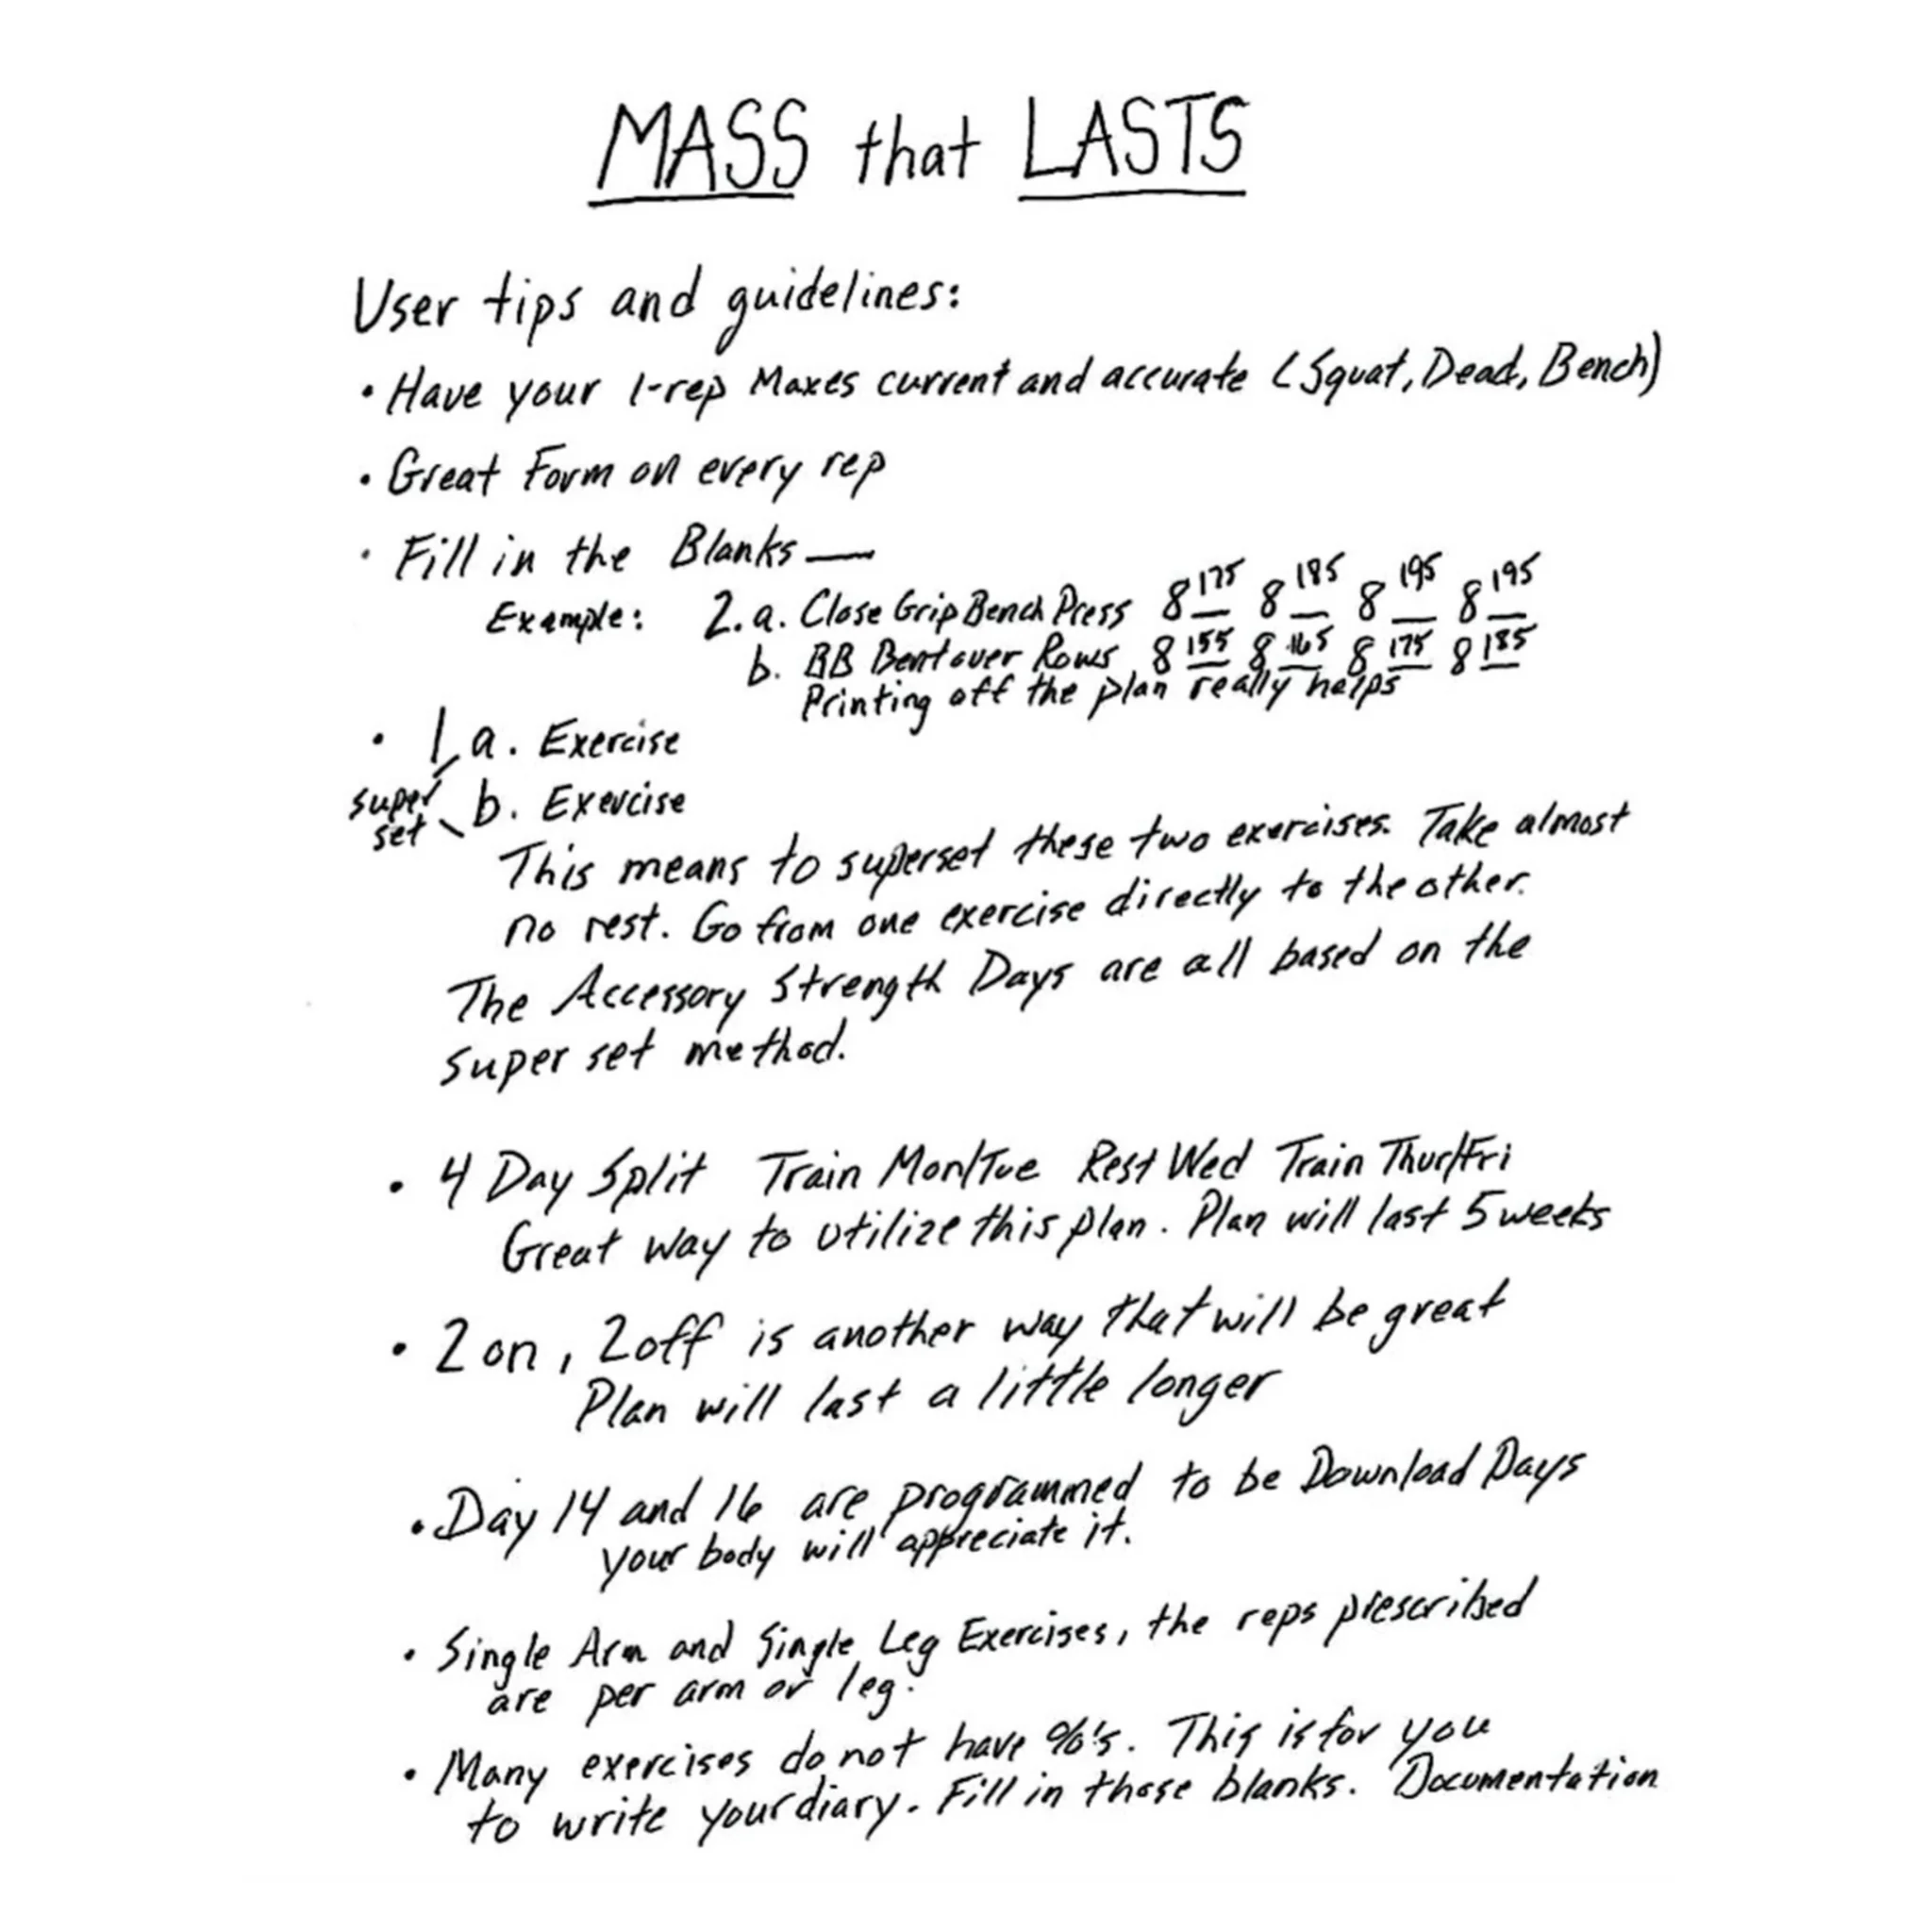 MASS that LASTS
User tips and guidelines:
• Have your 1-rep Maxes current and accurate (Squat, Dead, Bench)
• Great Form on every rep
• Fill in the Blanks —
Example: 2.a. Close Grip Bench Press 8 175 8 185 8 195 8 195
b. BB Bentover Rows 8 155 8 165 8 175 8 185
Printing off the plan really helps
• 1. a. Exercise
super set b. Exercise
This means to superset these two exercises. Take almost
no rest. Go from one exercise directly to the other.
The Accessory Strength Days are all based on the
super set method.
• 4 Day Split Train Mon/Tue Rest Wed Train Thur/Fri
Great way to utilize this plan. Plan will last 5 weeks
• 2 on, 2 off is another way that will be great
Plan will last a little longer
• Day 14 and 16 are programmed to be Download Days
your body will appreciate it.
• Single Arm and Single Leg Exercises, the reps prescribed
are per arm or leg.
• Many exercises do not have %'s. This is for you
to write your diary. Fill in those blanks. Documentation